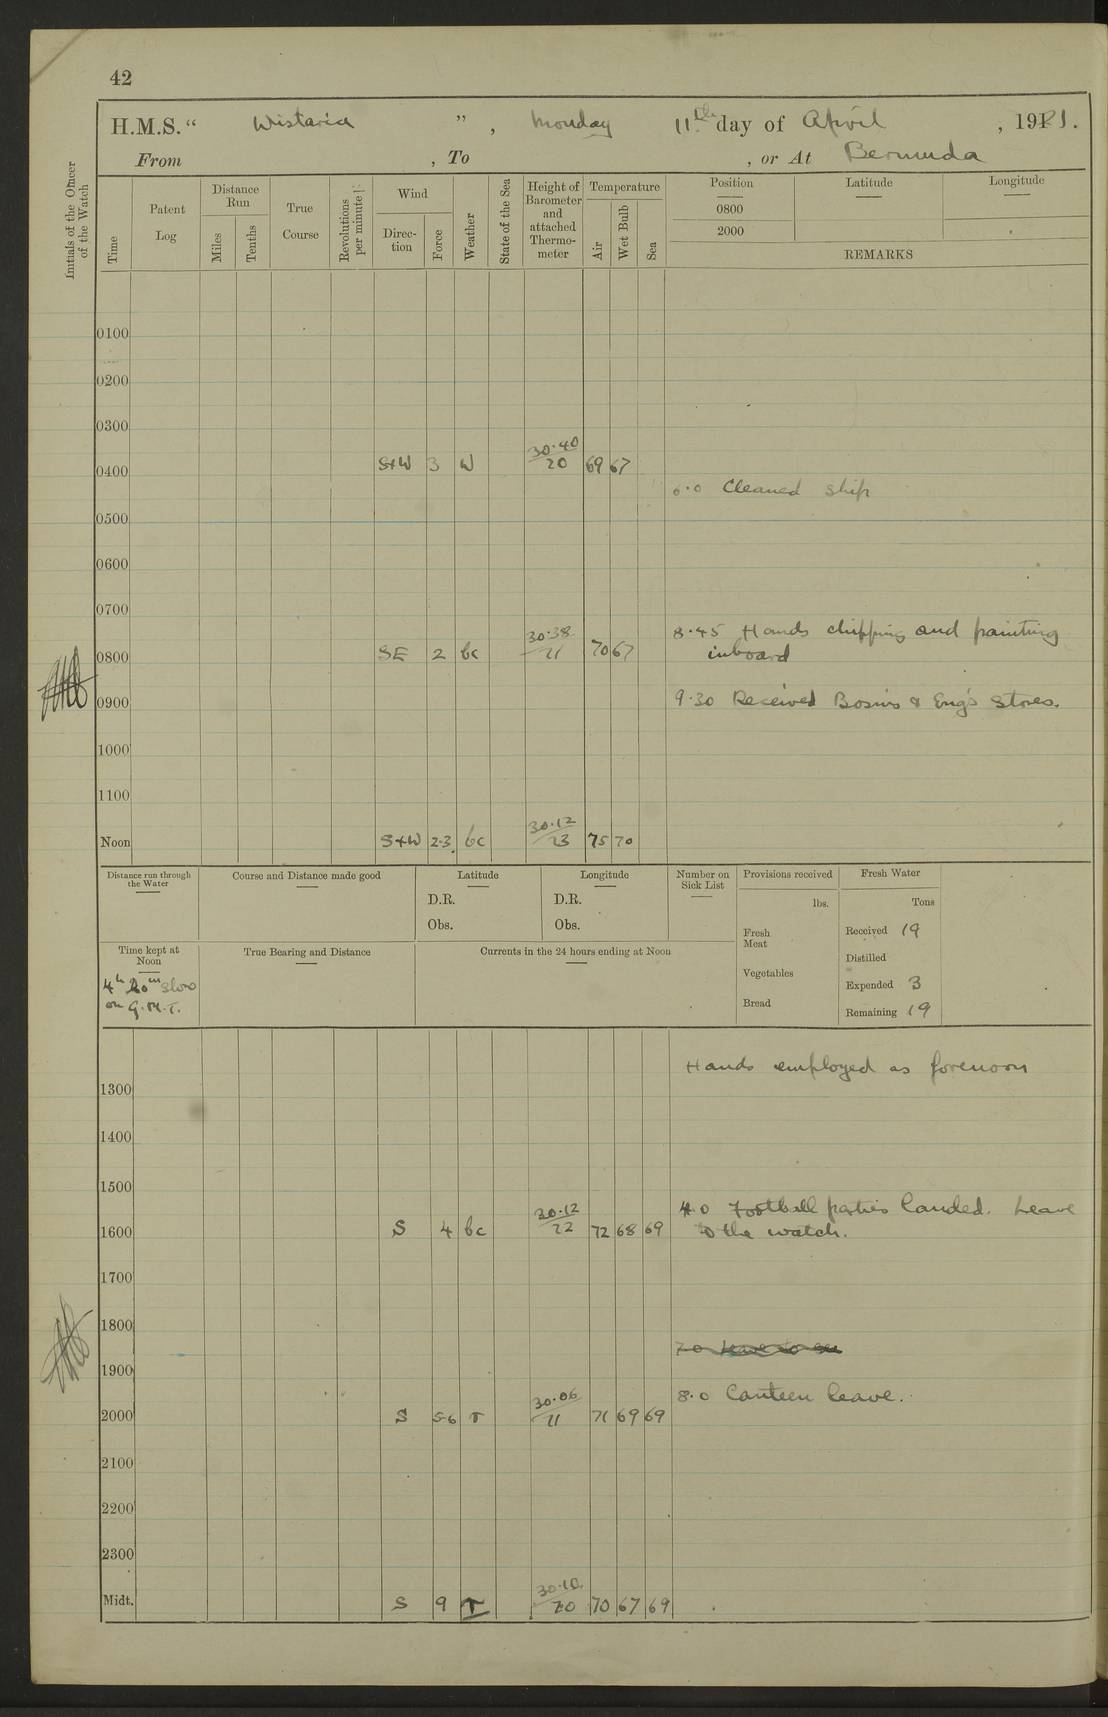 42
H.M.S. “ Wistaria ” , Monday 11th day of April , 1921.
From , To , or At Bermuda
Initials of the Officer of the Watch
Time
Patent Log
Distance Run
Miles
Tenths
True Course
Revolutions per minute
Wind
Direc-tion
Force
Weather
State of the Sea
Height of Barometer and attached Thermo-meter
Temperature
Air
Wet Bulb
Sea
Position Latitude Longitude
0800
2000
REMARKS
0100
0200
0300
0400 S+W 3 W 30.40/20 69 67
6.0 Cleaned ship
0500
0600
0700
8.45 Hands chipping and painting
0800 SE 2 bc 30.38/21 70 67 inboard
0900 9.30 Received Bosn's & Eng's Stores.
1000
1100
Noon S+W 2.3 bc 30.12/23 75 70
Distance run through the Water
Course and Distance made good
Latitude
D.R.
Obs.
Longitude
D.R.
Obs.
Number on Sick List
Provisions received
lbs.
Fresh Meat
Vegetables
Bread
Fresh Water
Tons
Received 19
Distilled
Expended 3
Remaining 19
Time kept at Noon
4h 20m slow
on G.M.T.
True Bearing and Distance
Currents in the 24 hours ending at Noon
Hands employed as forenoon
1300
1400
1500
4.0 Football parties landed. Leave
1600 S 4 bc 30.12/22 72 68 69 to the watch.
1700
1800
7.0 Leave to
1900
8.0 Canteen leave.
2000 S 5-6 r 30.06/21 71 69 69
2100
2200
2300
Midt. S 9 r 30.10/20 70 67 69